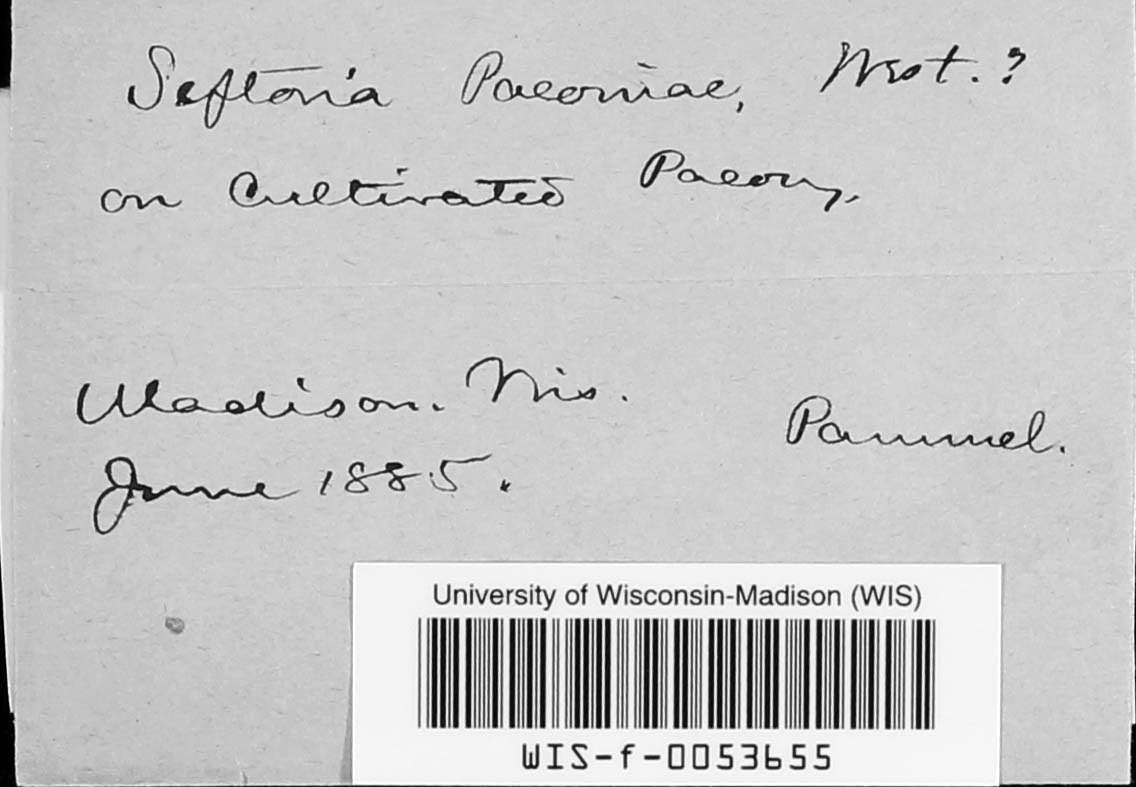 Septoria Paeoniae, West.?
on Cultivated Paeony.
Madison. Wis.
Pammel.
June 1885.
University of Wisconsin-Madison (WIS)
WIS-f-0053655